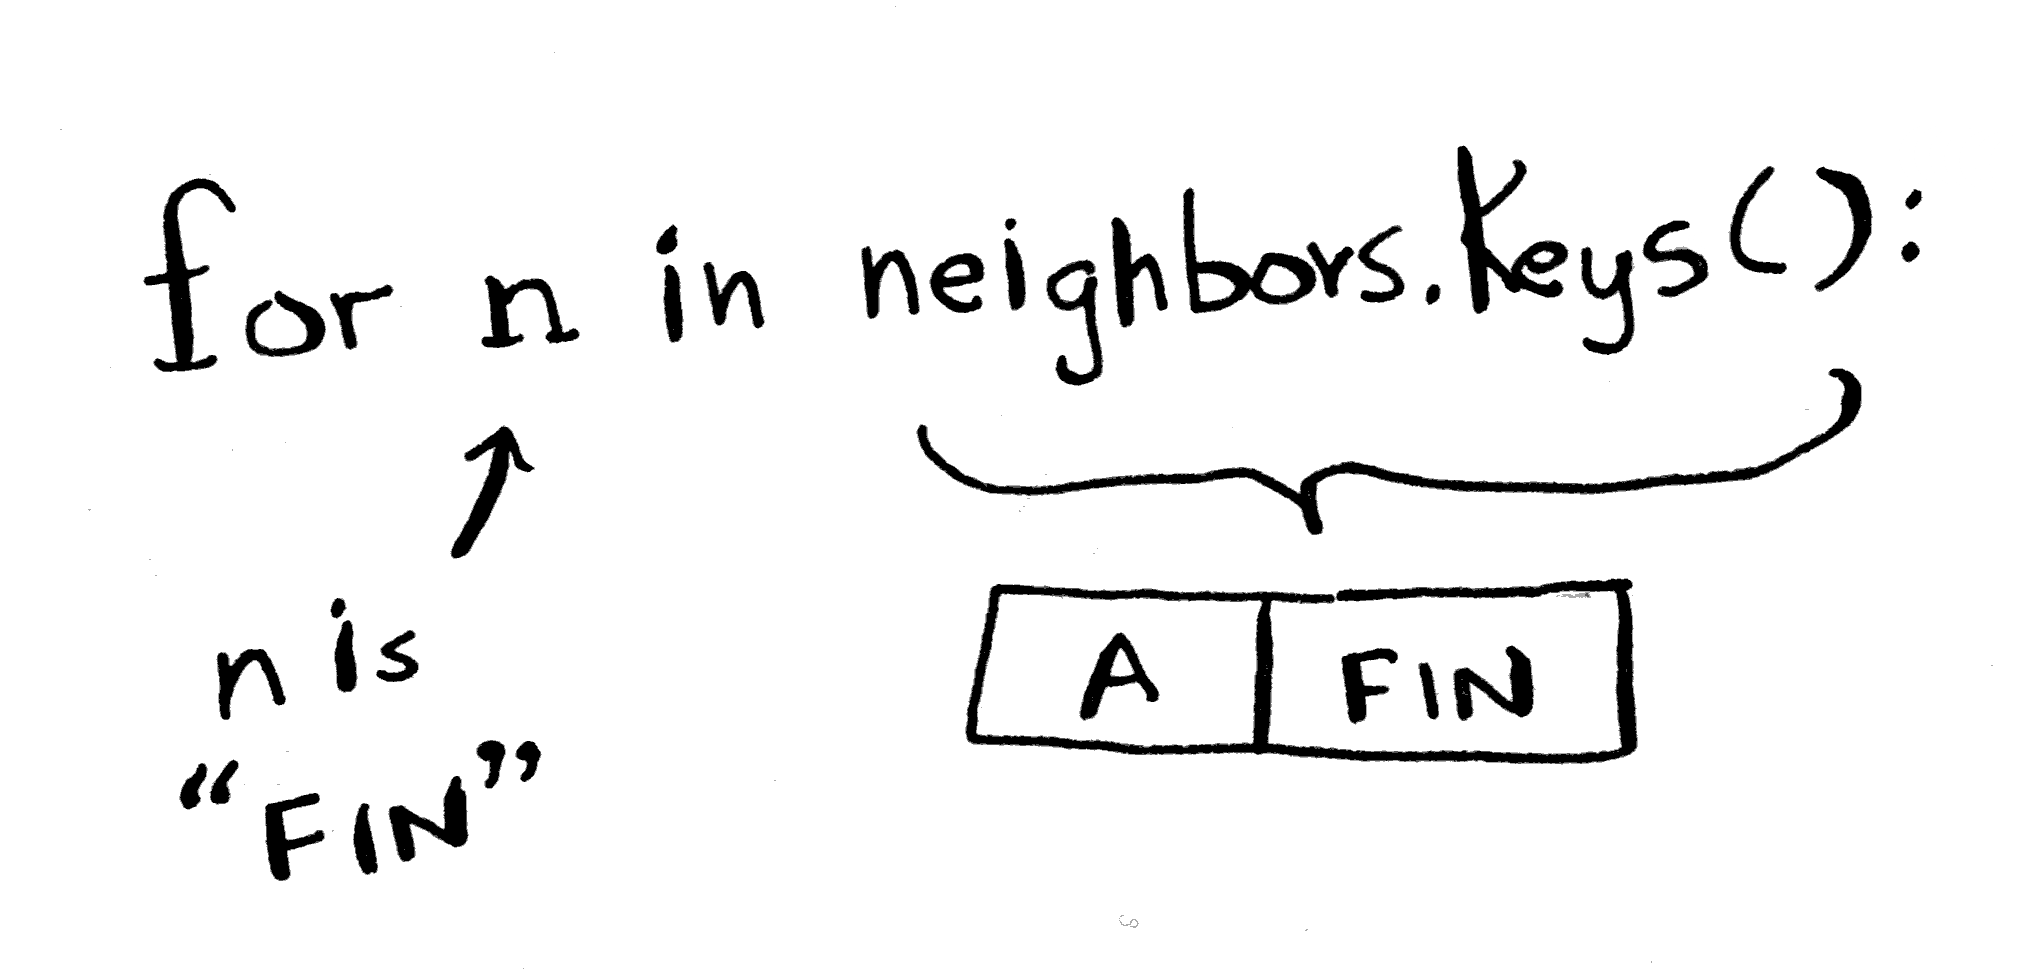 for n in neighbors.keys():
n is
“FIN”
A FIN